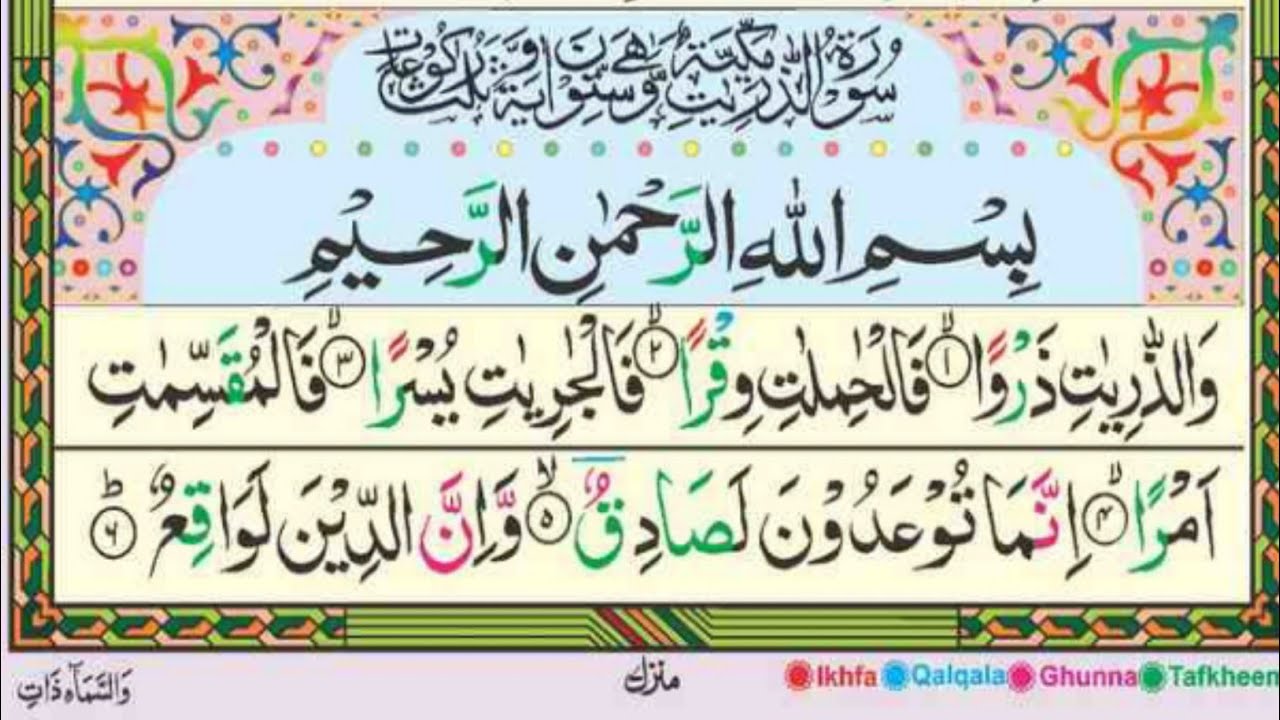 سُوْرَةُ الذّٰرِيٰتِ مَكِّيَّةٌ وَّهِيَ سِتُّوْنَ اٰيَةً وَّثَلٰثُ رُكُوْعَاتٍ
بِسْمِ اللّٰهِ الرَّحْمٰنِ الرَّحِيْمِ
وَالذّٰرِيٰتِ ذَرْوًا ۙ﴿۱﴾ فَالْحٰمِلٰتِ وِقْرًا ۙ﴿۲﴾ فَالْجٰرِيٰتِ يُسْرًا ۙ﴿۳﴾ فَالْمُقَسِّمٰتِ
اَمْرًا ۙ﴿۴﴾ اِنَّمَا تُوْعَدُوْنَ لَصَادِقٌ ۙ﴿۵﴾ وَّاِنَّ الدِّيْنَ لَوَاقِعٌ ؕ﴿۶﴾
وَالسَّمَآءِ ذَاتِ
Ikhfa Qalqala Ghunna Tafkheem